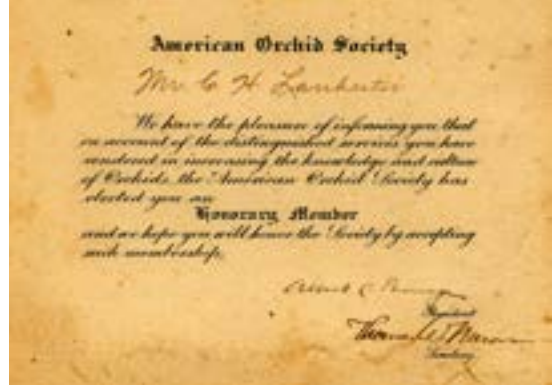 American Orchid Society
Mr C H Lankester
We have the pleasure of informing you that
on account of the distinguished services you have
rendered in increasing the knowledge and culture
of Orchids, the American Orchid Society has
elected you an
Honorary Member
and we hope you will honor the Society by accepting
such membership.
Albert C
President
Secretary